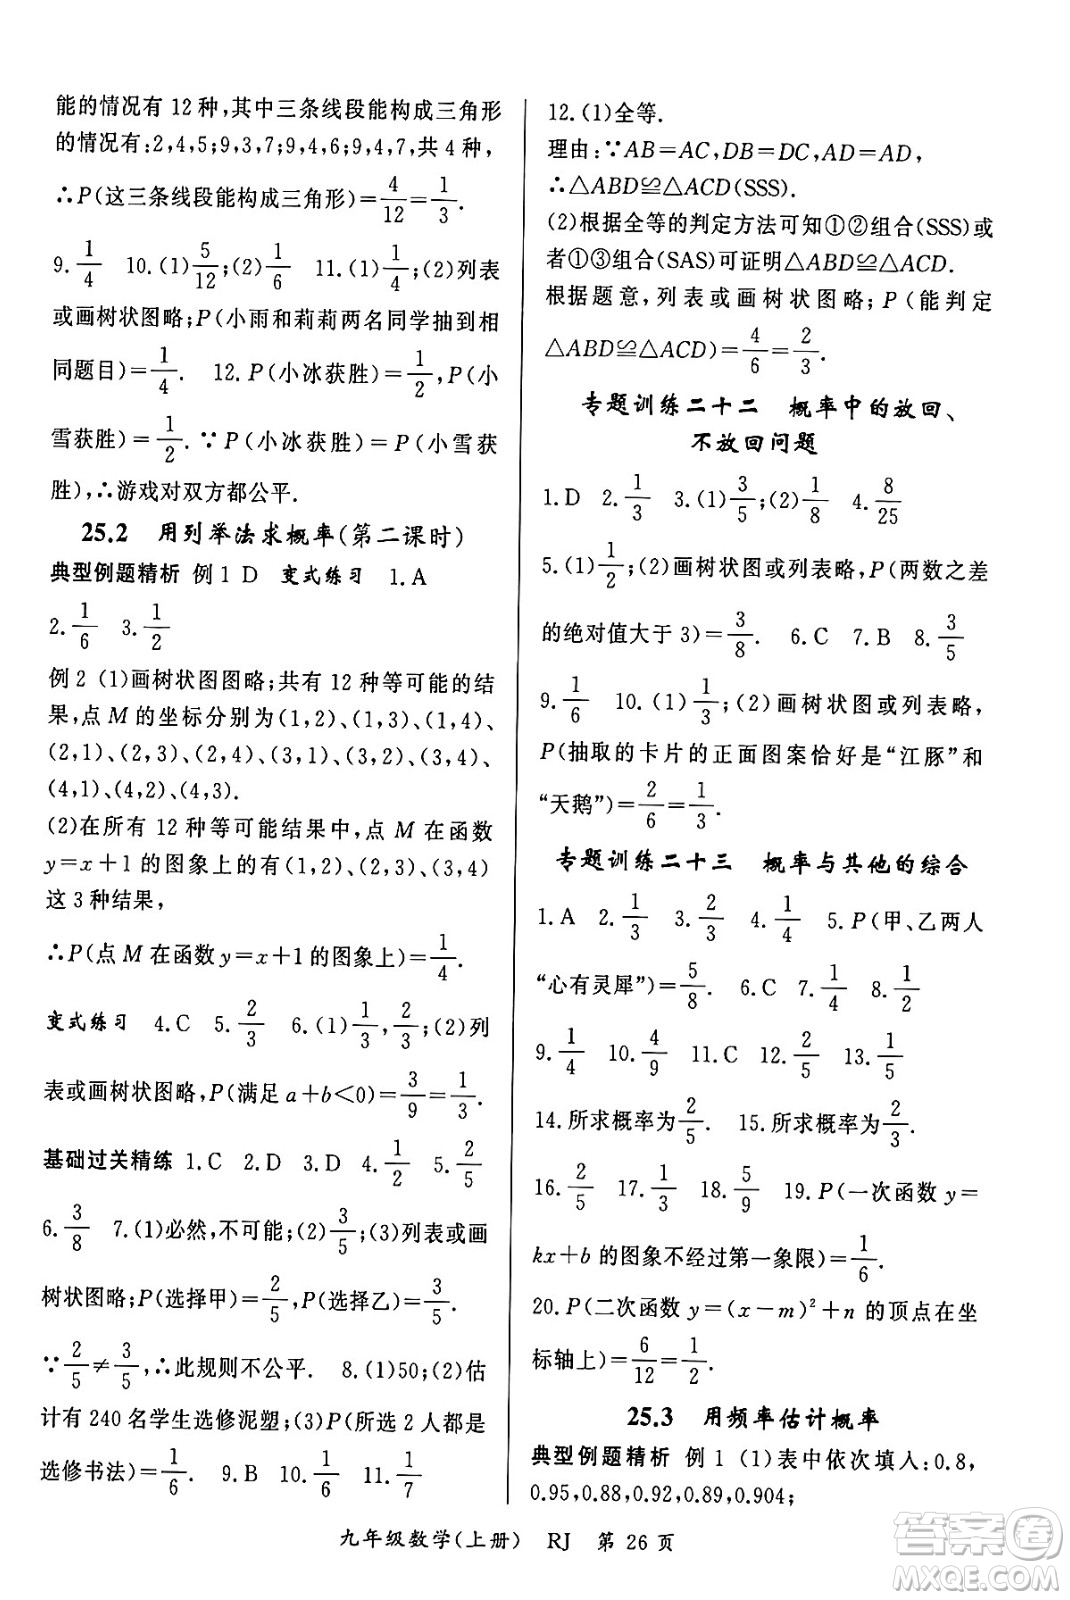 能的情况有 12 种,其中三条线段能构成三角形
的情况有:2,4,5;9,3,7;9,4,6;9,4,7,共 4 种,
∴P(这三条线段能构成三角形)=4/12=1/3.
9.1/4 10.(1)5/12;(2)1/6 11.(1)1/4;(2)列表
或画树状图略;P(小雨和莉莉两名同学抽到相
同题目)=1/4. 12.P(小冰获胜)=1/2,P(小
雪获胜)=1/2.∵P(小冰获胜)=P(小雪获
胜),∴游戏对双方都公平.
25.2 用列举法求概率(第二课时)
典型例题精析 例 1 D 变式练习 1.A
2.1/6 3.1/2
例 2 (1)画树状图图略;共有 12 种等可能的结
果,点 M 的坐标分别为(1,2)、(1,3)、(1,4)、
(2,1)、(2,3)、(2,4)、(3,1)、(3,2)、(3,4)、
(4,1)、(4,2)、(4,3).
(2)在所有 12 种等可能结果中,点 M 在函数
y=x+1 的图象上的有(1,2)、(2,3)、(3,4)
这 3 种结果,
∴P(点 M 在函数 y=x+1 的图象上)=1/4.
变式练习 4.C 5.2/3 6.(1)1/3,2/3;(2)列
表或画树状图略,P(满足 a+b<0)=3/9=1/3.
基础过关精练 1.C 2.D 3.D 4.1/2 5.2/5
6.3/8 7.(1)必然,不可能;(2)3/5;(3)列表或画
树状图略;P(选择甲)=2/5,P(选择乙)=3/5.
∵2/5≠3/5,∴此规则不公平. 8.(1)50;(2)估
计有 240 名学生选修泥塑;(3)P(所选 2 人都是
选修书法)=1/6. 9.B 10.1/6 11.1/7
12.(1)全等.
理由:∵AB=AC,DB=DC,AD=AD,
∴△ABD≌△ACD(SSS).
(2)根据全等的判定方法可知①②组合(SSS)或
者①③组合(SAS)可证明△ABD≌△ACD.
根据题意,列表或画树状图略;P(能判定
△ABD≌△ACD)=4/6=2/3.
专题训练二十二 概率中的放回、
不放回问题
1.D 2.1/3 3.(1)3/5;(2)1/8 4.8/25
5.(1)1/2;(2)画树状图或列表略,P(两数之差
的绝对值大于 3)=3/8. 6.C 7.B 8.3/5
9.1/6 10.(1)1/3;(2)画树状图或列表略,
P(抽取的卡片的正面图案恰好是“江豚”和
“天鹅”)=2/6=1/3.
专题训练二十三 概率与其他的综合
1.A 2.1/3 3.2/3 4.1/4 5.P(甲、乙两人
“心有灵犀”)=5/8. 6.C 7.1/4 8.1/2
9.1/4 10.4/9 11.C 12.2/5 13.1/5
14.所求概率为2/5. 15.所求概率为2/3.
16.2/5 17.1/3 18.5/9 19.P(一次函数 y=
kx+b 的图象不经过第一象限)=1/6.
20.P(二次函数 y=(x-m)²+n 的顶点在坐
标轴上)=6/12=1/2.
25.3 用频率估计概率
典型例题精析 例 1 (1)表中依次填入:0.8,
0.95,0.88,0.92,0.89,0.904;
九年级数学(上册) RJ 第 26 页
答案圈
MXQE.COM